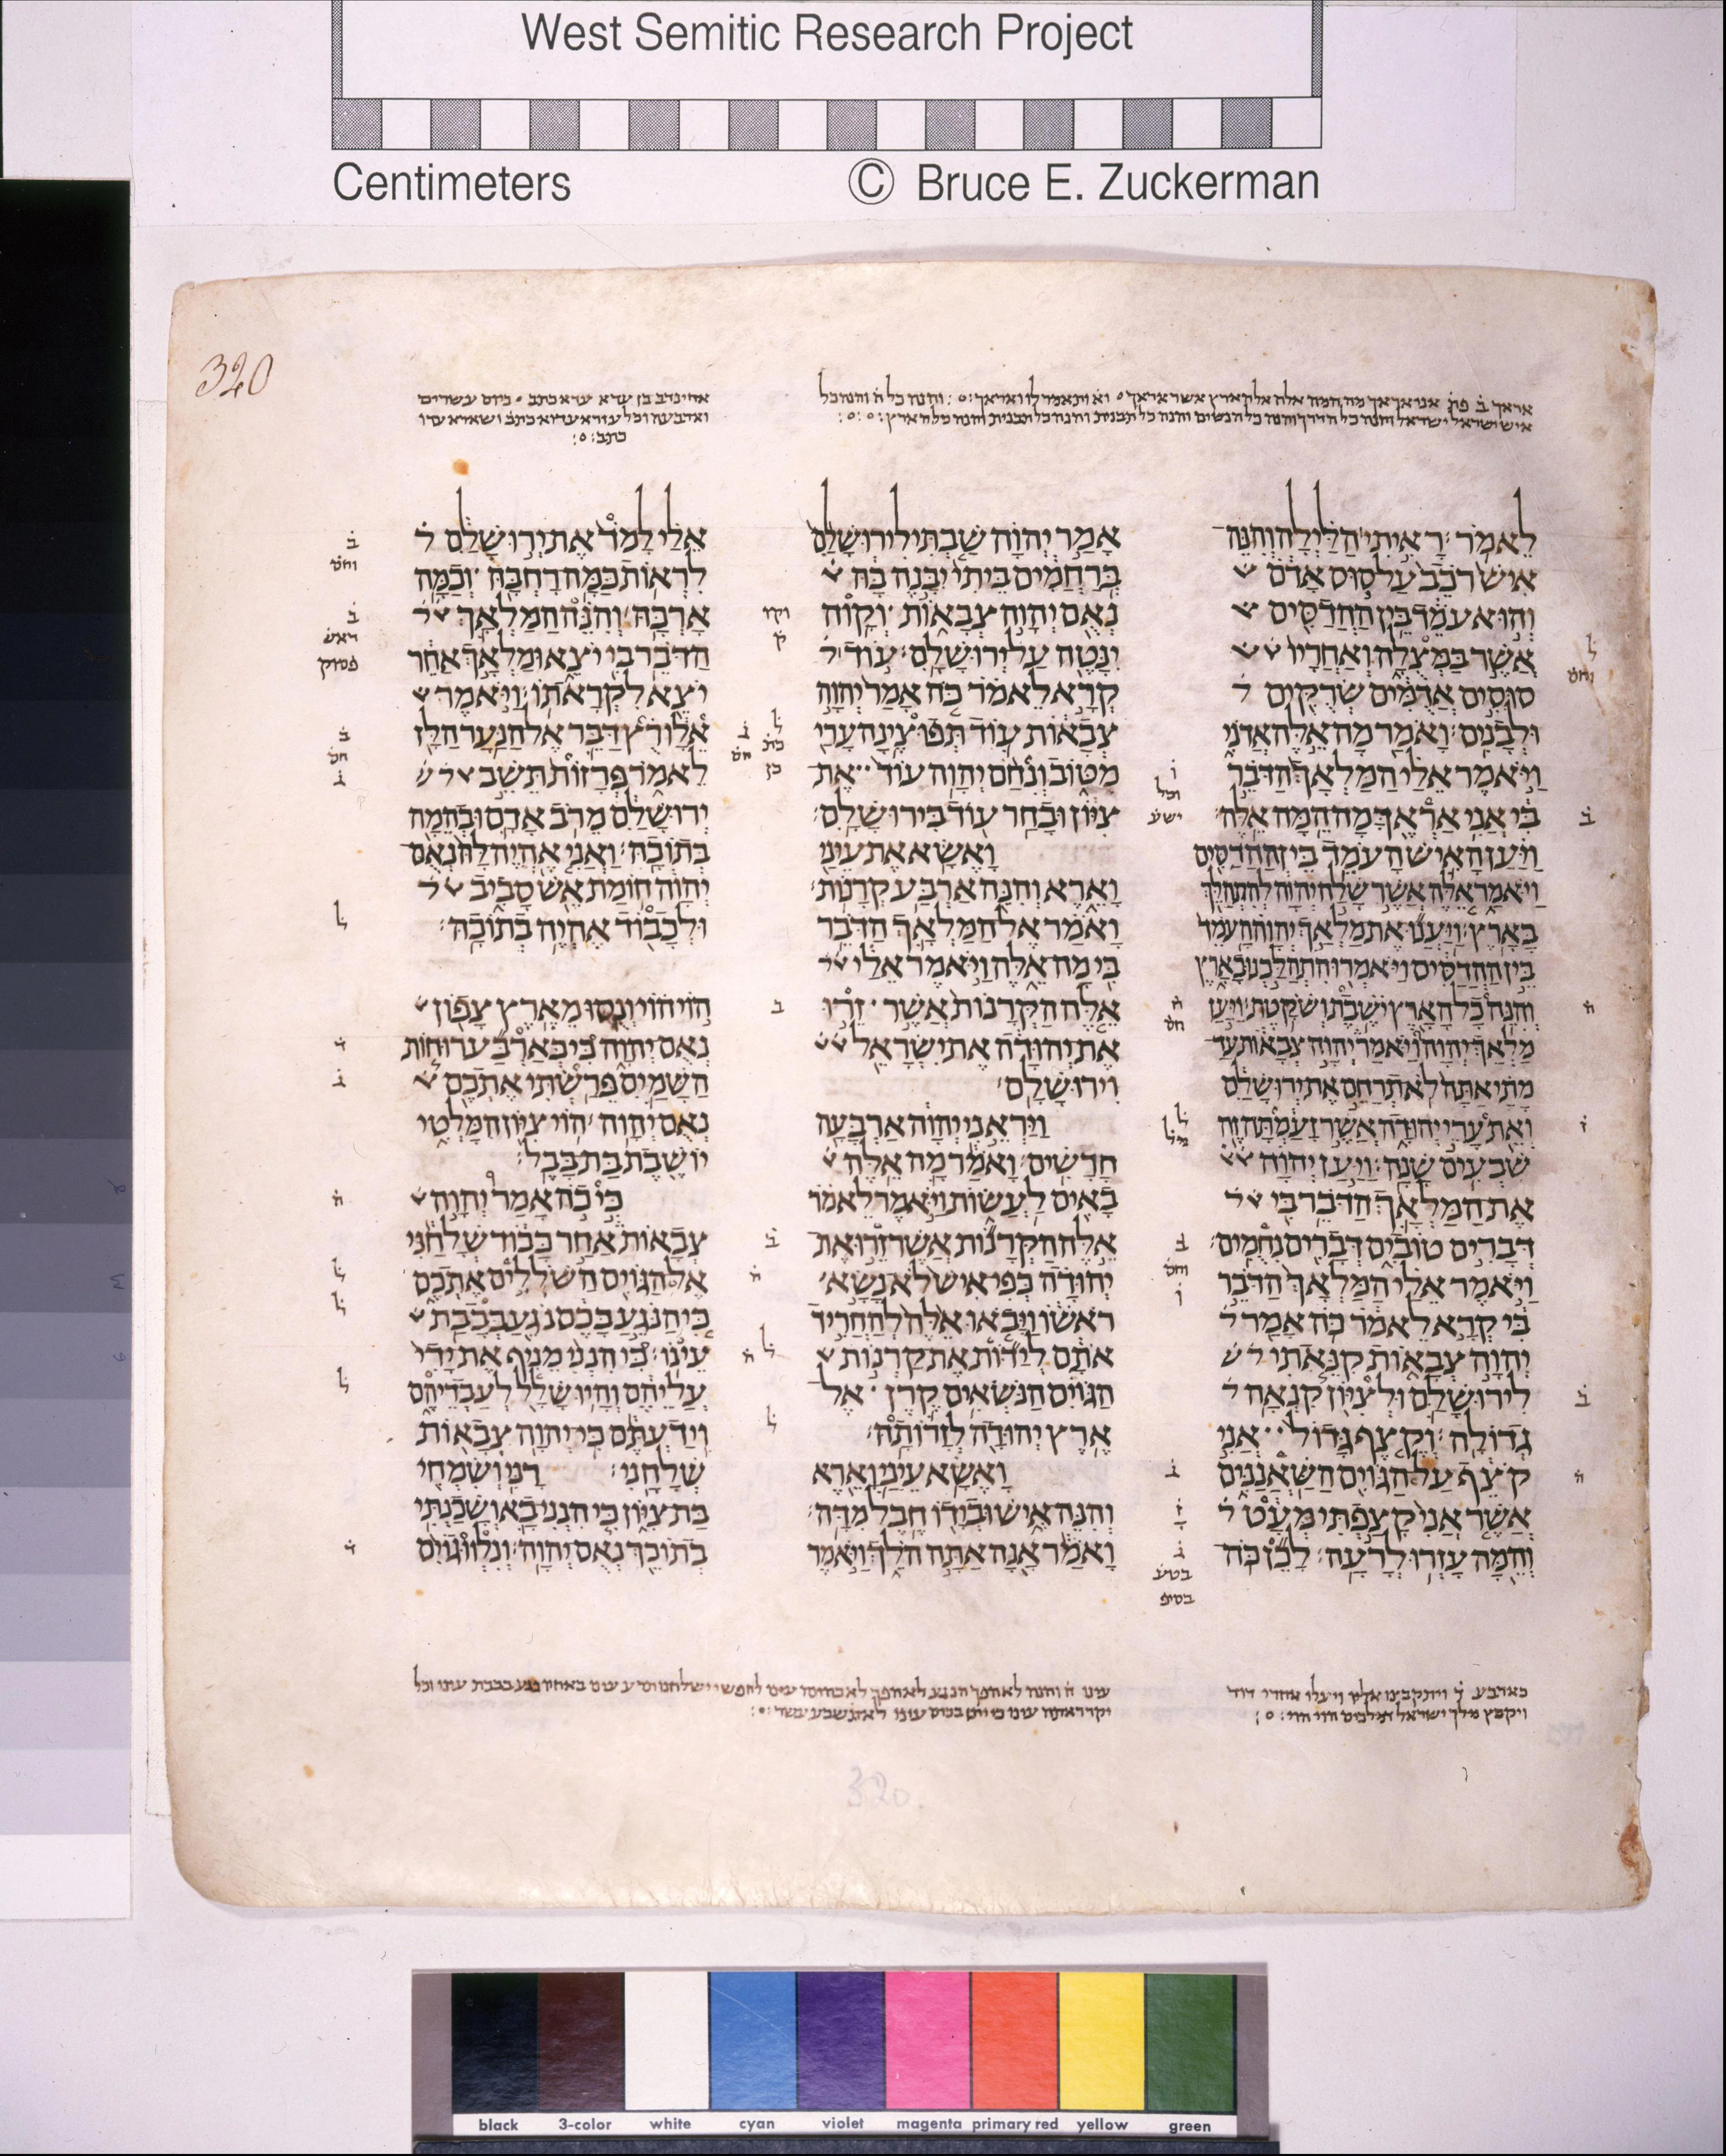 West Semitic Research Project
Centimeters © Bruce E. Zuckerman
320
לֵאמֹר׃ רָאִיתִי הַלַּיְלָה וְהִנֵּה
אִישׁ רֹכֵב עַל סוּס אָדֹם
וְהוּא עֹמֵד בֵּין הַהֲדַסִּים
אֲשֶׁר בַּמְּצֻלָה וְאַחֲרָיו
סוּסִים אֲדֻמִּים שְׂרֻקִּים
וּלְבָנִים׃ וָאֹמַר מָה אֵלֶּה אֲדֹנִי
וַיֹּאמֶר אֵלַי הַמַּלְאָךְ הַדֹּבֵר
בִּי אֲנִי אַרְאֶךָּ מָה הֵמָּה אֵלֶּה׃
וַיַּעַן הָאִישׁ הָעֹמֵד בֵּין הַהֲדַסִּים
וַיֹּאמַר אֵלֶּה אֲשֶׁר שָׁלַח יְהוָה לְהִתְהַלֵּךְ
בָּאָרֶץ׃ וַיַּעֲנוּ אֶת מַלְאַךְ יְהוָה הָעֹמֵד
בֵּין הַהֲדַסִּים וַיֹּאמְרוּ הִתְהַלַּכְנוּ בָאָרֶץ
וְהִנֵּה כָל הָאָרֶץ יֹשֶׁבֶת וְשֹׁקָטֶת׃ וַיַּעַן
מַלְאַךְ יְהוָה וַיֹּאמַר יְהוָה צְבָאוֹת עַד
מָתַי אַתָּה לֹא תְרַחֵם אֶת יְרוּשָׁלִַם
וְאֵת עָרֵי יְהוּדָה אֲשֶׁר זָעַמְתָּה זֶה
שִׁבְעִים שָׁנָה׃ וַיַּעַן יְהוָה
אֶת הַמַּלְאָךְ הַדֹּבֵר בִּי
דְּבָרִים טוֹבִים דְּבָרִים נִחֻמִים׃
וַיֹּאמֶר אֵלַי הַמַּלְאָךְ הַדֹּבֵר
בִּי קְרָא לֵאמֹר כֹּה אָמַר
יְהוָה צְבָאוֹת קִנֵּאתִי
לִירוּשָׁלִַם וּלְצִיּוֹן קִנְאָה
גְדוֹלָה׃ וְקֶצֶף גָּדוֹל אֲנִי
קֹצֵף עַל הַגּוֹיִם הַשַּׁאֲנַנִּים
אֲשֶׁר אֲנִי קָצַפְתִּי מְּעָט
וְהֵמָּה עָזְרוּ לְרָעָה׃ לָכֵן כֹּה
אָמַר יְהוָה שַׁבְתִּי לִירוּשָׁלִַם
בְּרַחֲמִים בֵּיתִי יִבָּנֶה בָּהּ
נְאֻם יְהוָה צְבָאוֹת וְקָוה
יִנָּטֶה עַל יְרוּשָׁלִָם׃ עוֹד
קְרָא לֵאמֹר כֹּה אָמַר יְהוָה
צְבָאוֹת עוֹד תְּפוּצֶינָה עָרַי
מִטּוֹב וְנִחַם יְהוָה עוֹד אֶת
צִיּוֹן וּבָחַר עוֹד בִּירוּשָׁלִָם׃
וָאֶשָּׂא אֶת עֵינַי
וָאֵרֶא וְהִנֵּה אַרְבַּע קְרָנוֹת׃
וָאֹמַר אֶל הַמַּלְאָךְ הַדֹּבֵר
בִּי מָה אֵלֶּה וַיֹּאמֶר אֵלַי
אֵלֶּה הַקְּרָנוֹת אֲשֶׁר זֵרוּ
אֶת יְהוּדָה אֶת יִשְׂרָאֵל
וִירוּשָׁלִָם׃
וַיַּרְאֵנִי יְהוָה אַרְבָּעָה
חָרָשִׁים׃ וָאֹמַר מָה אֵלֶּה
בָאִים לַעֲשׂוֹת וַיֹּאמֶר לֵאמֹר
אֵלֶּה הַקְּרָנוֹת אֲשֶׁר זֵרוּ אֶת
יְהוּדָה כְּפִי אִישׁ לֹא נָשָׂא
רֹאשׁוֹ וַיָּבֹאוּ אֵלֶּה לְהַחֲרִיד
אֹתָם לְיַדּוֹת אֶת קַרְנוֹת
הַגּוֹיִם הַנֹּשְׂאִים קֶרֶן אֶל
אֶרֶץ יְהוּדָה לְזָרוֹתָהּ׃
וָאֶשָּׂא עֵינַי וָאֵרֶא
וְהִנֵּה אִישׁ וּבְיָדוֹ חֶבֶל מִדָּה׃
וָאֹמַר אָנָה אַתָּה הֹלֵךְ וַיֹּאמֶר
אֵלַי לָמֹד אֶת יְרוּשָׁלִַם
לִרְאוֹת כַּמָּה רָחְבָּהּ וְכַמָּה
אָרְכָּהּ׃ וְהִנֵּה הַמַּלְאָךְ
הַדֹּבֵר בִּי יֹצֵא וּמַלְאָךְ אַחֵר
יֹצֵא לִקְרָאתוֹ׃ וַיֹּאמֶר
אֵלָו רֻץ דַּבֵּר אֶל הַנַּעַר הַלָּז
לֵאמֹר פְּרָזוֹת תֵּשֵׁב
יְרוּשָׁלִַם מֵרֹב אָדָם וּבְהֵמָה
בְּתוֹכָהּ׃ וַאֲנִי אֶהְיֶה לָּהּ נְאֻם
יְהוָה חוֹמַת אֵשׁ סָבִיב
וּלְכָבוֹד אֶהְיֶה בְתוֹכָהּ׃
הוֹי הוֹי וְנֻסוּ מֵאֶרֶץ צָפוֹן
נְאֻם יְהוָה כִּי כְּאַרְבַּע רוּחוֹת
הַשָּׁמַיִם פֵּרַשְׂתִּי אֶתְכֶם
נְאֻם יְהוָה׃ הוֹי צִיּוֹן הִמָּלְטִי
יוֹשֶׁבֶת בַּת בָּבֶל׃
כִּי כֹה אָמַר יְהוָה
צְבָאוֹת אַחַר כָּבוֹד שְׁלָחַנִי
אֶל הַגּוֹיִם הַשֹּׁלְלִים אֶתְכֶם
כִּי הַנֹּגֵעַ בָּכֶם נֹגֵעַ בְּבָבַת
עֵינוֹ׃ כִּי הִנְנִי מֵנִיף אֶת יָדִי
עֲלֵיהֶם וְהָיוּ שָׁלָל לְעַבְדֵיהֶם
וִידַעְתֶּם כִּי יְהוָה צְבָאוֹת
שְׁלָחָנִי׃ רָנִּי וְשִׂמְחִי
בַּת צִיּוֹן כִּי הִנְנִי בָא וְשָׁכַנְתִּי
בְתוֹכֵךְ נְאֻם יְהוָה׃ וְנִלְווּ גוֹיִם
320
black 3-color white cyan violet magenta primary red yellow green